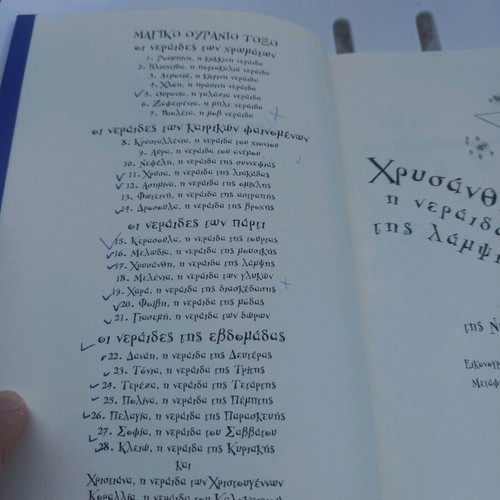 ΜΑΓΙΚΟ ΟΥΡΑΝΙΟ ΤΟΞΟ
οι νεράιδες των χρωμάτων
1. Ρουμπίνη, η κόκκινη νεράιδα
2. η πορτοκαλιά νεράιδα
3. Λεμονιά, η κίτρινη νεράιδα
4. Χλόη, η πράσινη νεράιδα
5. Ουρανία, η γαλάζια νεράιδα
6. Ζαφειρένια, η μπλε νεράιδα
7. Βιολέτα, η μοβ νεράιδα
οι νεράιδες των καιρικών φαινομένων
8. Κρυσταλλένια, η νεράιδα του χιονιού
9. Αύρα, η νεράιδα του ανέμου
10. Νεφέλη, η νεράιδα της συννεφιάς
11. Χρύσα, η νεράιδα της λιακάδας
12. Ασημίνα, η νεράιδα της ομίχλης
13. Φωτεινή, η νεράιδα της αστραπής
14. Δροσούλα, η νεράιδα της βροχής
οι νεράιδες των πάρτι
15. Κερασούλα, η νεράιδα της τούρτας
16. Μελωδία, η νεράιδα της μουσικής
17. Χρυσάνθη, η νεράιδα της λάμψης
18. Μελένια, η νεράιδα των γλυκών
19. Χαρά, η νεράιδα της διασκέδασης
20. Φοίβη, η νεράιδα της μόδας
21. Γιασεμή, η νεράιδα των δώρων
οι νεράιδες της εβδομάδας
22. Δανάη, η νεράιδα της Δευτέρας
23. Τόνια, η νεράιδα της Τρίτης
24. Τερέζα, η νεράιδα της Τετάρτης
25. Πολίνα, η νεράιδα της Πέμπτης
26. Πελαγία, η νεράιδα της Παρασκευής
27. Σοφία, η νεράιδα του Σαββάτου
28. Κλειώ, η νεράιδα της Κυριακής
και
Χριστιάνα, η νεράιδα των Χριστουγέννων
Κοραλλία, η νεράιδα του
Χρυσάνθ
η νεράιδα
της λάμψη
της
Εικονογρ
Μετάφ